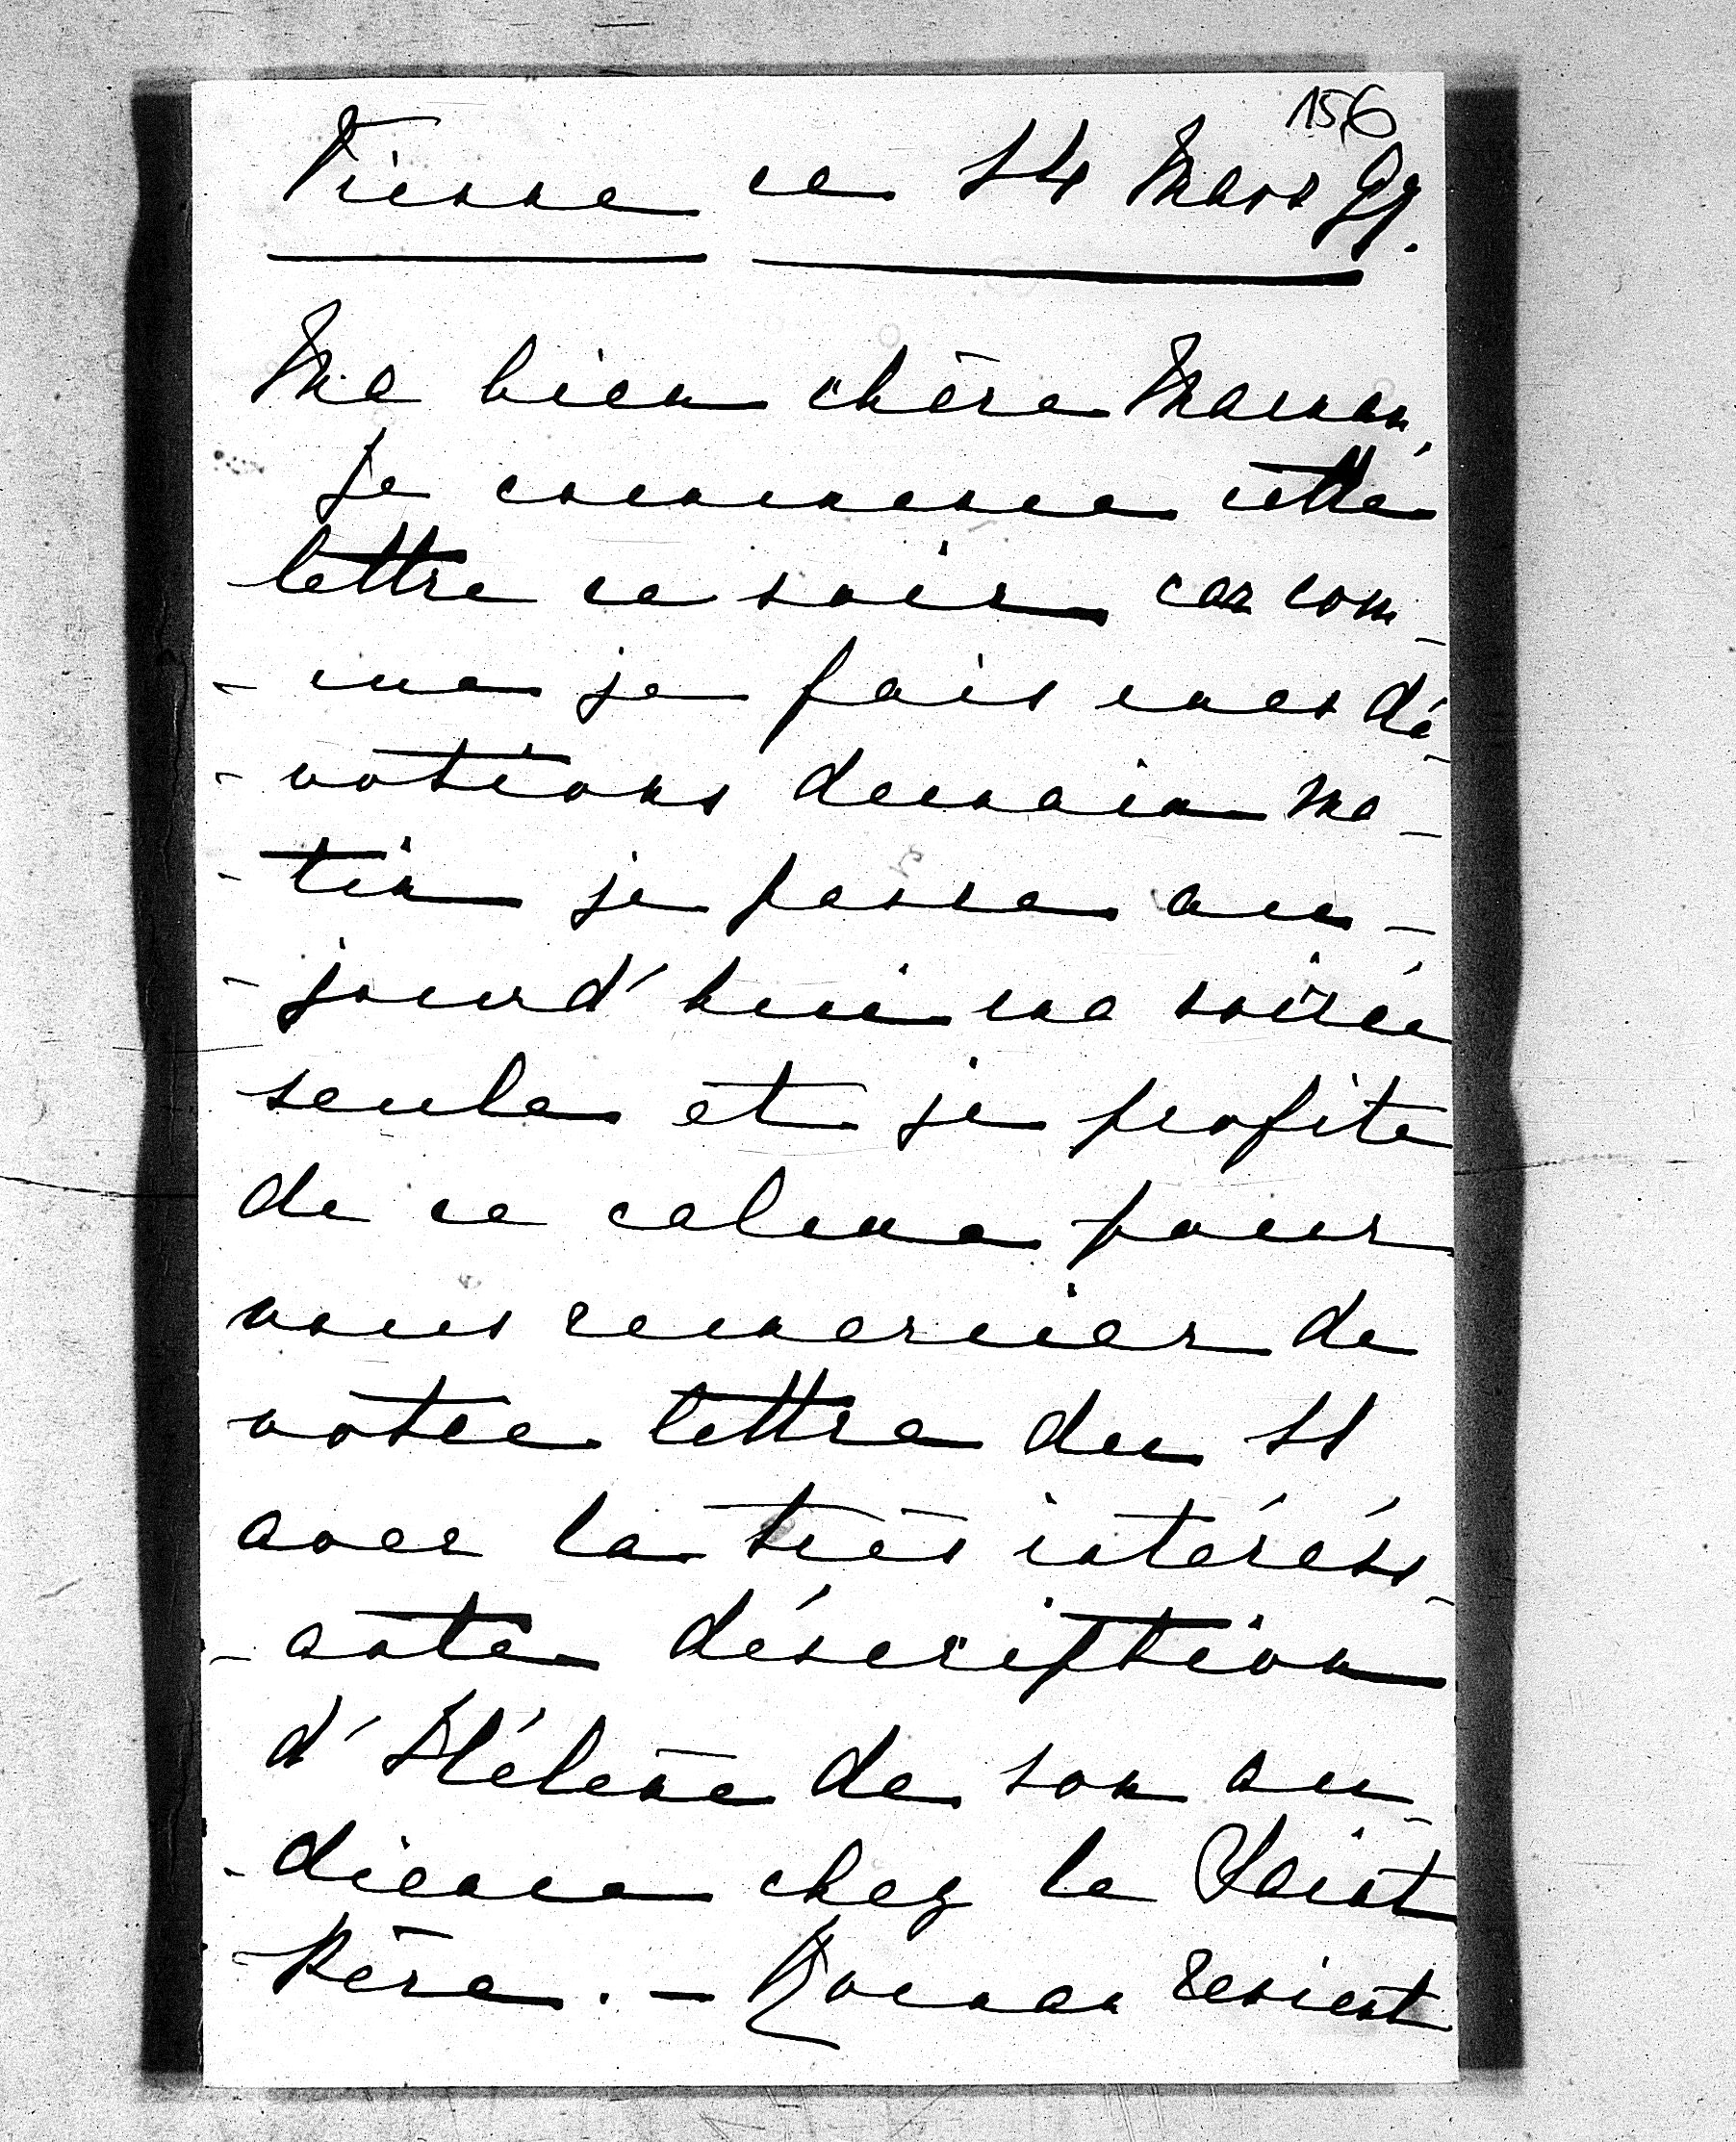 156
Vienne ce 14 Mars 99.
Ma bien chère Maman,
Je commence cette
lettre ce soir car com-
- me je fais mes dé-
- votions demain ma-
- tin je passe au-
- jourd'hui ma soirée
seule et je profite
de ce calme pour
vous remercier de
votre lettre du 11
avec la très intéréss-
- ante déscription
d'Hélène de son au-
- dience chez le Saint
- Père. - revient